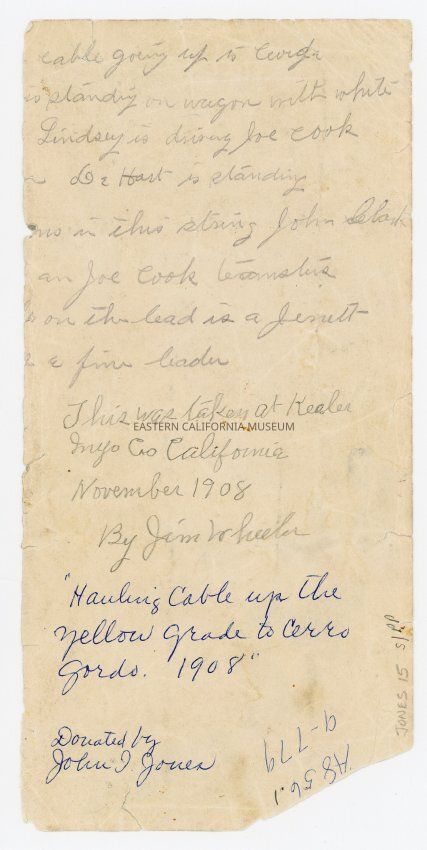 cable going up to Cerogr
is standing on wagon with white
Lindsey is driving Joe Cook
De Hart is standing
ms in this string John Clark
an Joe Cook teamsters
on the lead is a Jenett
a fine leader
This was taken at Kealer
EASTERN CALIFORNIA MUSEUM
Inyo Co California
November 1908
By Jim Wheeler
"Hauling Cable up the
yellow grade to Cerro
Gordo. 1908"
Donated by
John I Jones
JONES 15 S/PP
9-779
A8561.